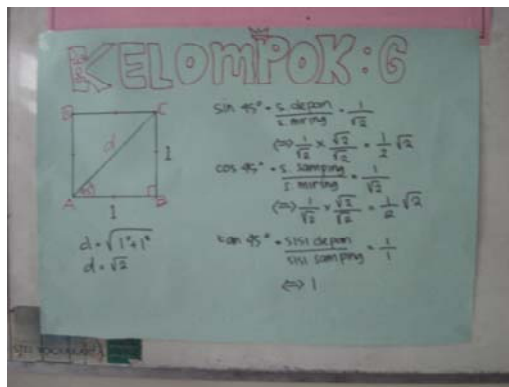 KELOMPOK : 6
D C
d 1
45°
A B
1
d = √1²+1²
d = √2
sin 45° = s. depan / s. miring = 1/√2
⟺ 1/√2 × √2/√2 = 1/2 √2
cos 45° = s. samping / s. miring = 1/√2
⟺ 1/√2 × √2/√2 = 1/2 √2
tan 45° = sisi depan / sisi samping = 1/1
⟺ 1